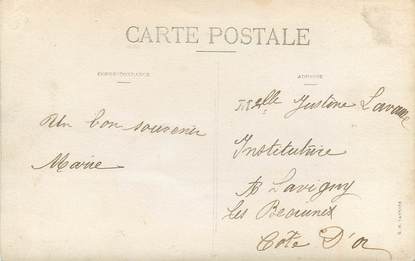 CARTE POSTALE
CORRESPONDANCE
ADRESSE
Un bon souvenir
Marie
Melle Justine
Institutrice
A Lavigny
les Beaunes
Côte D'or